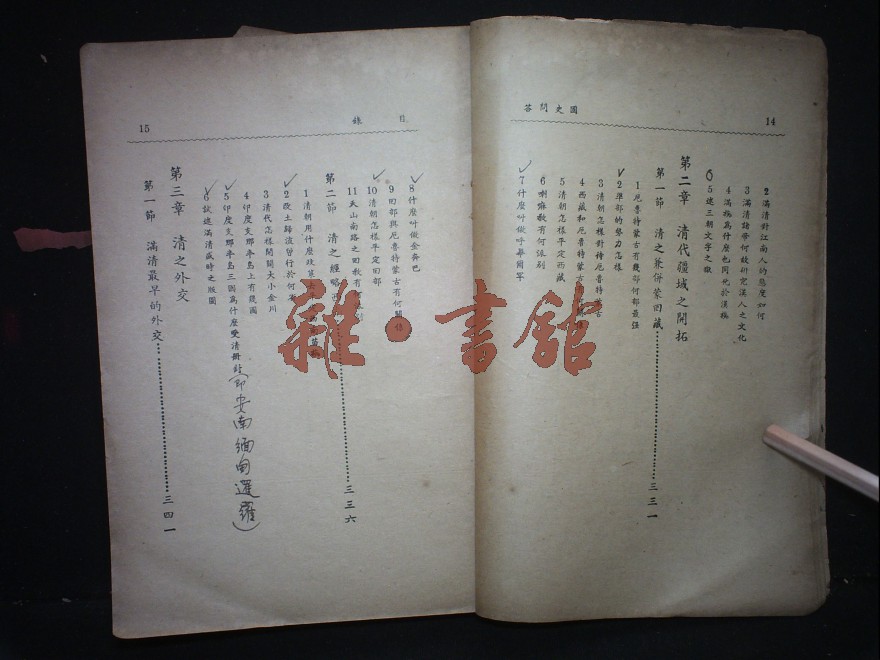 14
國史問答
2 滿清對江南人的態度如何
3 滿清諸帝何故研究漢人之文化
4 滿族爲什麼也同化於漢族
5 述三朝文字之獄
第二章 清代疆域之開拓
第一節 清之兼併蒙回藏 三三一
1 厄魯特蒙古有幾部何部最强
2 準部的勢力怎樣
3 清朝怎樣對待厄魯特蒙古
4 西藏和厄魯特蒙古
5 清朝怎樣平定西藏
6 喇嘛教有何派別
7 什麼叫做呼畢爾罕
目錄
15
8 什麼叫做金奔巴
9 回部與厄魯特蒙古有何關係
10 清朝怎樣平定回部
11 天山南路之回教有何
第二節 清之經略西 三三六
1 清朝用什麼政策
2 改土歸流皆行於何
3 清代怎樣開闢大小金川
4 印度支那半島上有幾國
5 印度支那半島三國爲什麼受清册封(即安南緬甸暹羅)
6 試述滿清盛時之版圖
第三章 清之外交
第一節 滿清最早的外交 三四一
雜·書舘